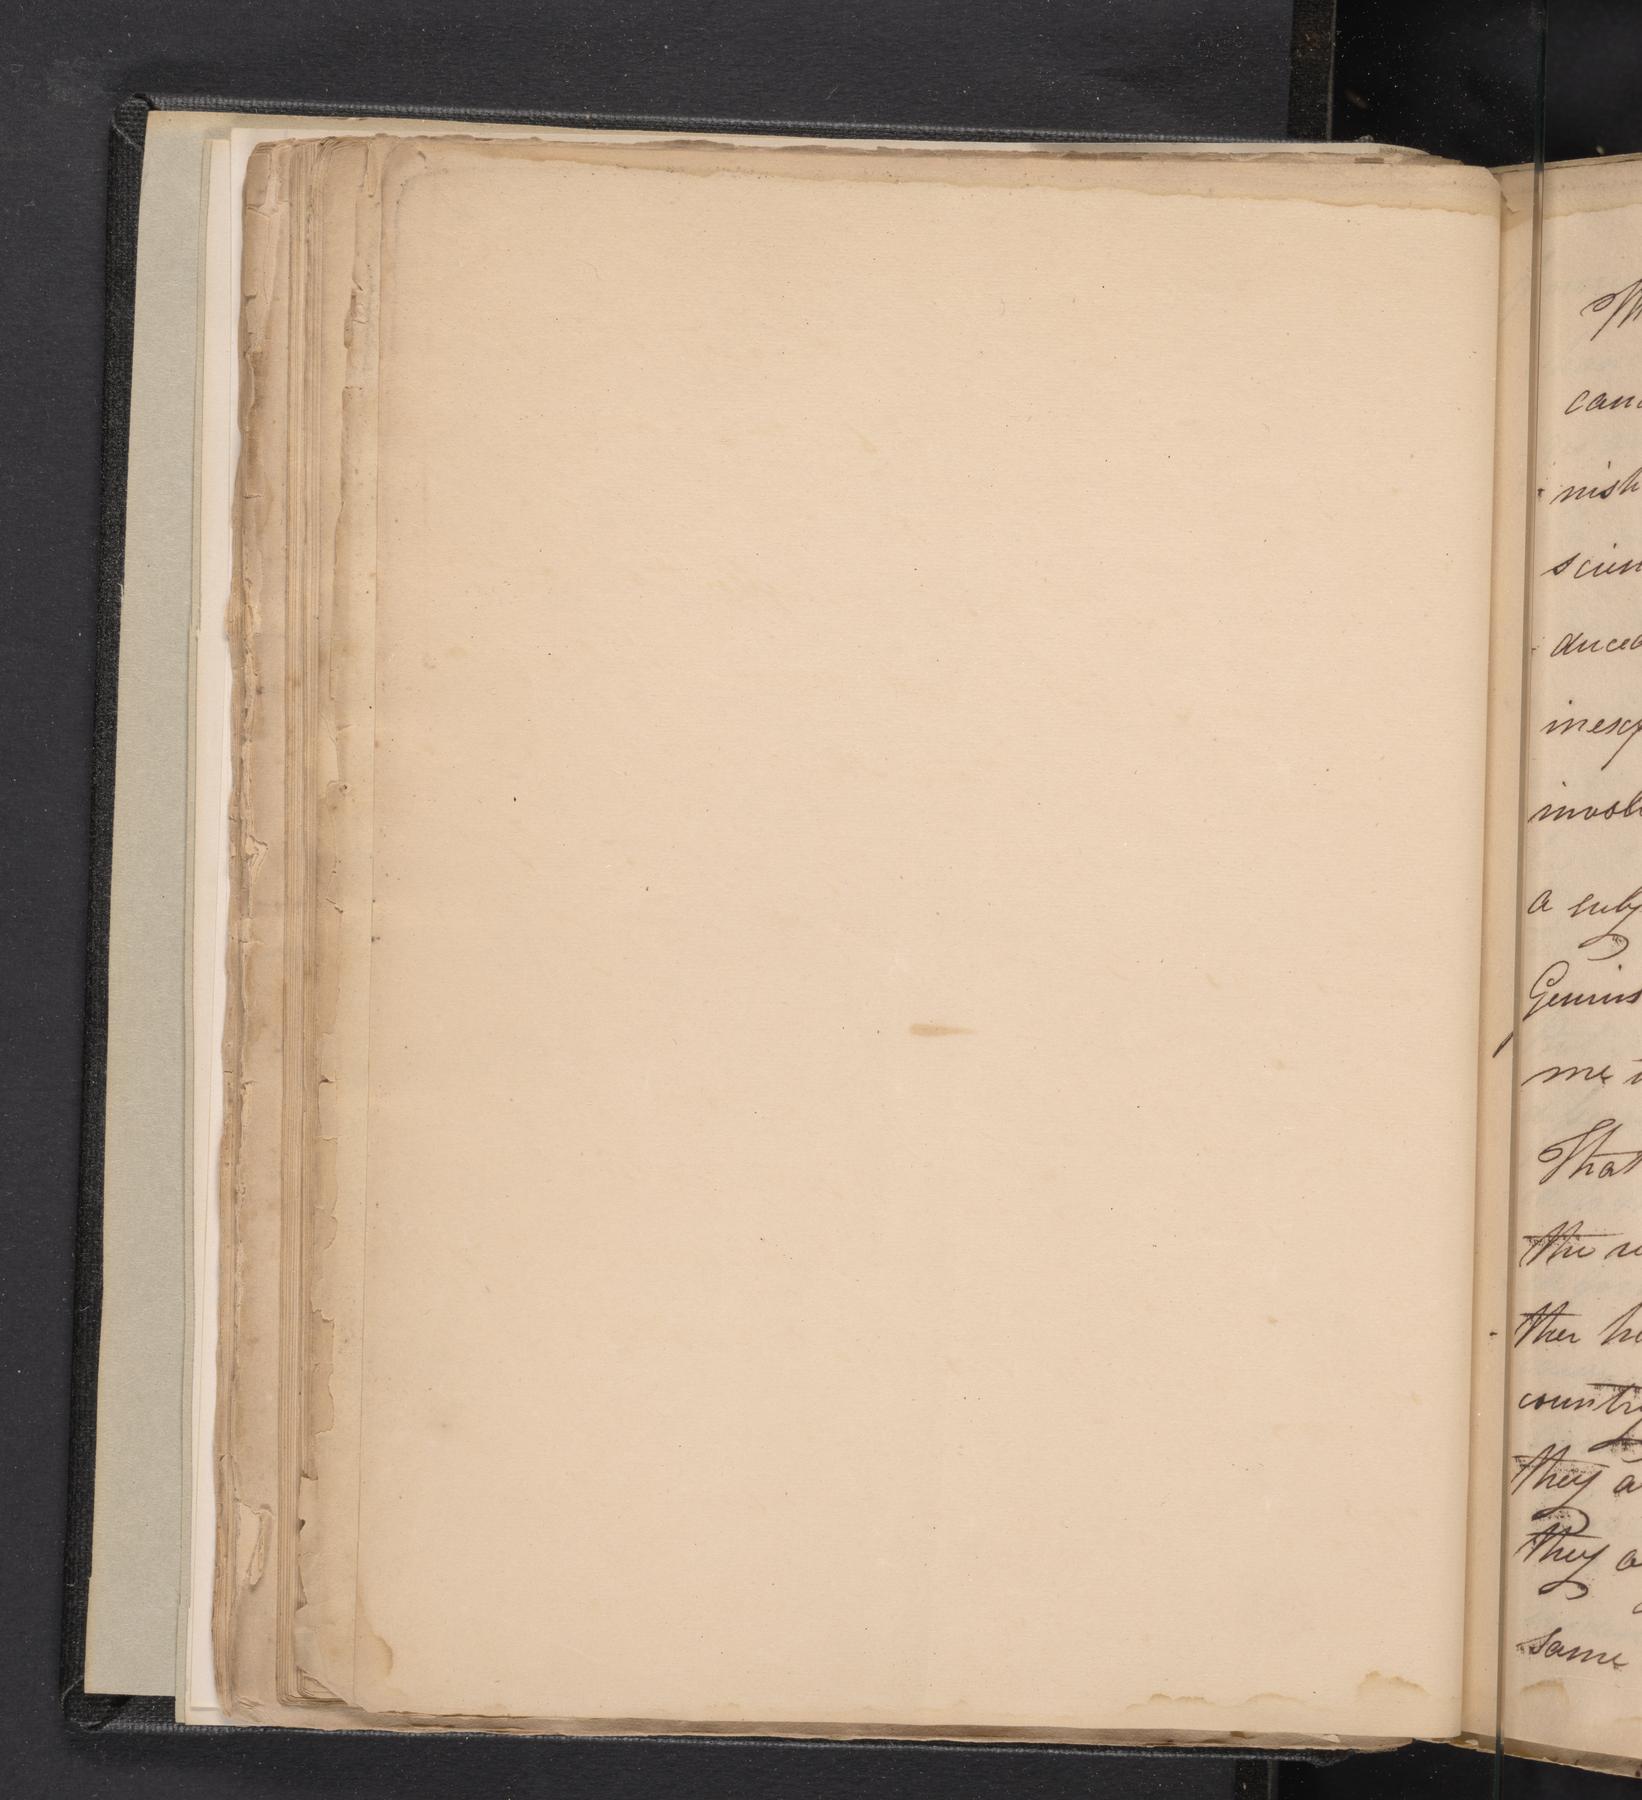 Th
cand
nish
scien
duced
inexp
involv
a subj
Genius
me t
That
the re
ther he
country
they a
they a
same